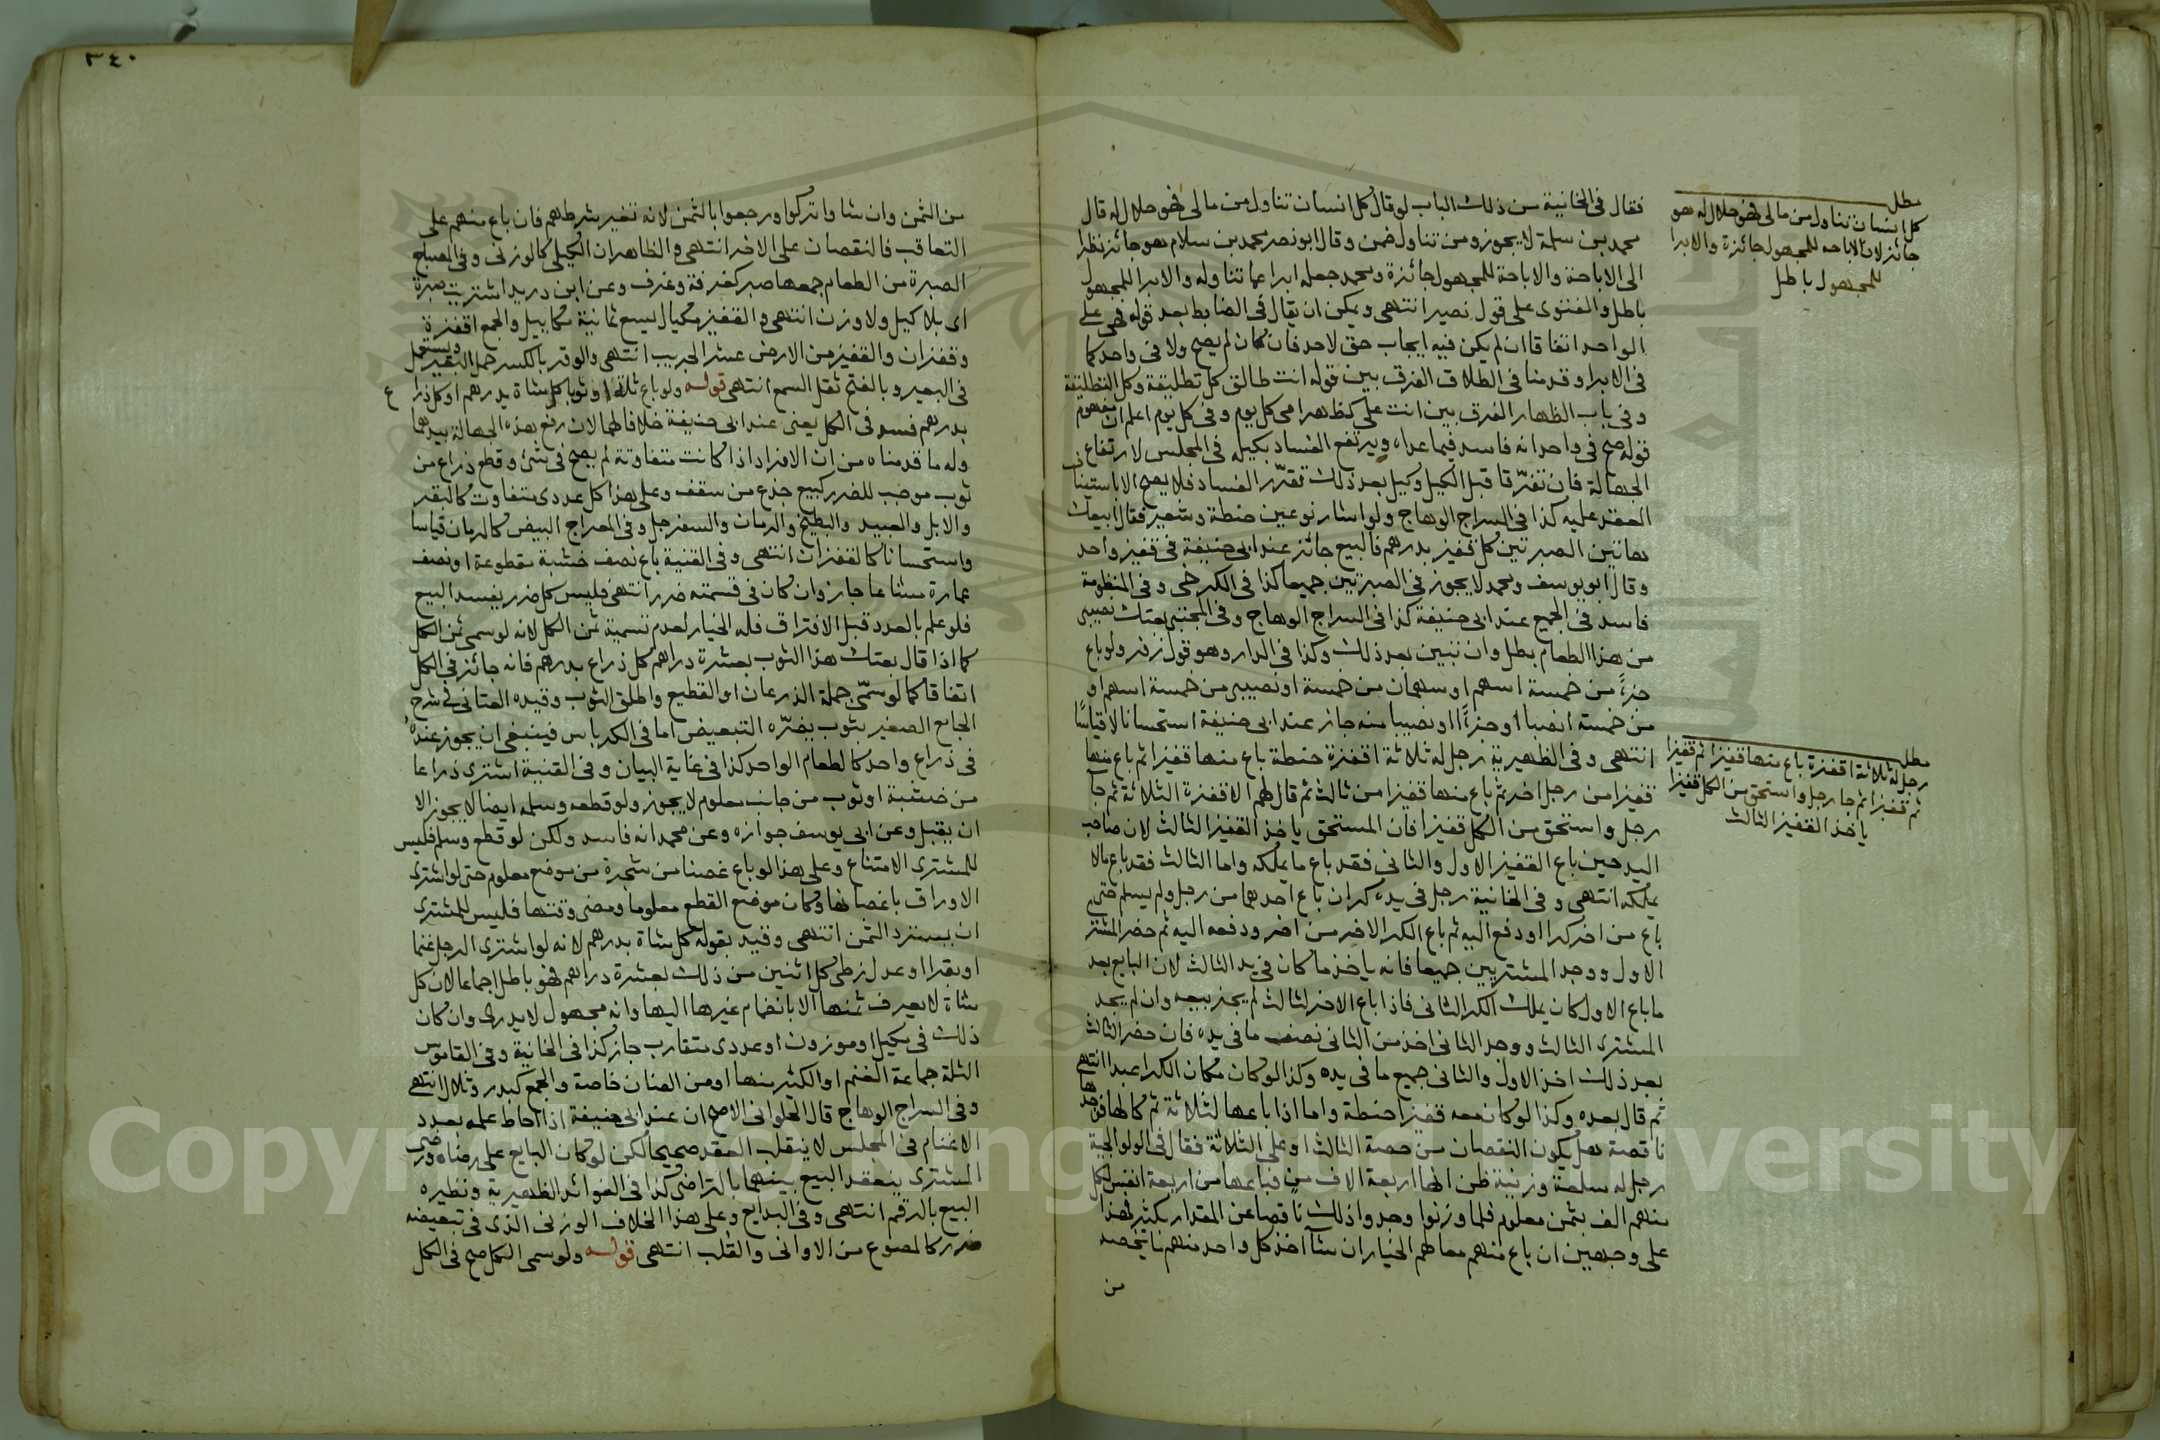 فقال فى الخانية من ذلك الباب لو قال كل انسان تناول من مالى فهو حلال له قال
محمد بن سلمة لا يجوز ومن تناول ضمن وقال ابو نصر محمد بن سلام هو جائز نظرا
الى الاباحة والاباحة للمجهول جائزة ومحمد جعله ابرا عما تناوله والابرا للمجهول
باطل والفتوى على قول نصير انتهى ويمكن ان يقال فى الضابط بعد قوله فهى على
الواحد اتفاقا ان لم يكن فيه ايجاب حق لاحد فان كان لم يصح ولا فى واحد كما
فى الابرا وقدمنا فى الطلاق الفرق بين قوله انت طالق كل تطليقة وكل التطليقة
وفى باب الظهار الفرق بين انت على كظهر امى كل يوم وفى كل يوم اعلم ان مفهوم
قوله صح فى واحد انه فاسد فيما عداه ويرتفع الفساد بكيله فى المجلس لارتفاع
الجهالة فان تفرقا قبل الكيل وكيل بعد ذلك تقرّر الفساد فلا يصح الا باستيناف
العقد عليه كذا فى السراج الوهاج ولو اشار نوعين حنطة وشعير فقال ابيعك
هاتين الصبرتين كل قفيز بدرهم فالبيع جائز عند ابى حنيفة فى قفيز واحد
وقال ابو يوسف ومحمد لا يجوز فى الصبرتين جميعا كذا فى الكرخى وفى المنظومة
فاسد فى الجميع عند ابى حنيفة كذا فى السراج الوهاج وفى المجتبى بعتك نصيبى
من هذا الطعام بطل وان تبين بعد ذلك وكذا فى الدار وهو قول زفر ولو باع
جزءً من خمسة اسهم او سهمان من خمسة او نصيبى من خمسة اسهم او
من خمسة انصبا او جزءًا او نصيبا منه جاز عند ابى حنيفة استحسانا لا قياسًا
انتهى وفى الظهيرية رجل له ثلاثة اقفزة حنطة باع منها قفيزا ثم باع منها
قفيزا من رجل اخر ثم باع منها قفيزا من ثالث ثم قال لهم الاقفزة الثلاثة ثم جآ
رجل واستحق من الكل قفيزا فان المستحق ياخذ القفيز الثالث لان صاحب
اليد حين باع القفيز الاول والثانى فقد باع ما يملكه واما الثالث فقد باع مالا
يملكه انتهى وفى الخانية رجل فى يده كران باع احدهما من رجل ولم يسلم حتى
باع من اخر كرا ودفع اليه ثم باع الكر الاخر من اخر ودفعه اليه ثم حضر المشتر
الاول ووجد المشتريين جميعا فانه ياخذ ما كان فى يد الثالث لان البايع بعد
ما باع الاول كان يملك الكر الثانى فاذا باع الاخر لثالث لم يجز بيعه وان لم يجد
المشترى الثالث ووجد الثانى اخذ من الثانى نصف ما فى يده فان حضر الثالث
بعد ذلك اخذ الاول والثانى جميع ما فى يده وكذا لو كان مكان الكر عبدا انتهى
ثم قال بعده وكذا لو كان معه قفيزا حنطة واما اذا باعها لثلاثة ثم كالها فوجدها
ناقصة هل يكون النقصان من حصة الثالث او على الثلاثة فقال فى الولوالجية
رجل له سلعة وزنية ظن انها اربعة الاف منٍ فباعها من اربعة انفس لكل
منهم الف بثمن معلوم فلما وزنوا وجدوا ذلك ناقصا عن المقدار يكثر فهذا
على وجهين ان باع منهم معا لهم الخيار ان شآ اخذ كل واحد منهم ما يخصه
من
مطلب
كل انسان تناول من مالى فهو حلال له هو
جائز لان الاباحه للمجهول جائزة والابرا
للمجهول باطل
مطلب
رجل له ثلاثة اقفزة باع منها قفيزا ثم قفيزا
ثم قفيزا ثم جا رجل واستحق من الكل قفيزا
ياخذ القفيز الثالث
٣٤٠
من الثمن وان شاوا تركوا ورجعوا بالثمن لانه تغير شرطهم فان باع منهم على
التعاقب فالنقصان على الاخر انتهى والظاهر ان الكيلى كالوزنى وفى المصباح
الصبرة من الطعام جمعها صبر كغرفة وغرف وعن ابن دريد اشتريت صبرة
اى بلا كيل ولا وزن انتهى والقفيز مكيال يسع ثمانية مكاييل والجمع اقفزة
وقفزان والقفيز من الارض عشر الجريب انتهى والوقر بالكسر حمل البعير ويستعمل
فى البعير وبالفتح ثقل السمع انتهى قوله ولو باع ثلة او ثوبا كل شاة بدرهم او كل ذراع
بدرهم فسد فى الكل يعنى عند ابى حنيفة خلافا لهما لان رفع هذه الجهالة بيدهما
وله ما قدمناه من ان الافراد اذا كانت متفاوتة لم يصح فى شئ وقطع ذراع من
ثوب موجب للضرر كبيع جذع من سقف وعلى هذا كل عددى متفاوت كالبقر
والابل والعبيد والبطيخ والرمان والسفرجل وفى المعراج البيض كالرمان قياسا
واستحسانا كالقفزان انتهى وفى القنية باع نصف خشبة مقطوعة او نصف
عمارة مشاعا جاز وان كان فى قسمته ضرر انتهى فليس كل ضرر يفسد البيع
فلو علم بالعدد قبل الافتراق فله الخيار لعدم تسمية ثمن الكل لانه لو سمى ثمن الكل
كما اذا قال بعتك هذا الثوب بعشرة دراهم كل ذراع بدرهم فانه جائز فى الكل
اتفاقا كما لو سمّى جملة الذرعان او القطيع واطلق الثوب وقيده العتابى فى شرح
الجامع الصغير بثوب يضرّه التبعيض اما فى الكرباس فينبغى ان يجوز عنده
فى ذراع واحد كالطعام الواحد كذا فى غاية البيان وفى القنية اشترى ذراعا
من خشبة او ثوب من جانب معلوم لا يجوز ولو قطعه وسلمه ايضا لا يجوز الا
ان يقبل وعن ابى يوسف جوازه وعن محمد انه فاسد ولكن لو قطع وسلم فليس
للمشترى الامتناع وعلى هذا لو باع غصنا من شجرة من موضع معلوم حتى لو اشترى
الاوراق باغصانها وكان موضع القطع معلوما ومضى وقتها فليس للمشترى
ان يسترد الثمن انتهى وقيد بقوله كل شاة بدرهم لانه لو اشترى الرجل غنما
او بقرا او عدل زطى كل اثنين من ذلك بعشرة دراهم فهو باطل اجماعا لان كل
شاة لا يعرف ثمنها الا بانضمام غيرها اليها وانه مجهول لا يدرى وان كان
ذلك فى مكيل او موزون او عددى متقارب جاز كذا فى الخانية وفى القاموس
الثلة جماعة الغنم او الكثير منها او من الضان خاصة والجمع كبدر وثلال انتهى
وفى السراج الوهاج قال الحلوانى الاصح ان عند ابى حنيفة اذا احاط علمه بعدد
الاغنام فى المجلس لا ينقلب العقد صحيحا لكن لو كان البايع على رضاه ورضى
المشترى ينعقد البيع بينهما بالتراضى كذا فى الفوائد الظهيرية ونظيره
البيع بالرقم انتهى وفى البدايع وعلى هذا الخلاف الوزنى الذى فى تبعيضه
ضرر كالمصوغ من الاوانى والقلب انتهى قوله ولو سمى الكل صح فى الكل
Copyright © King Saud University